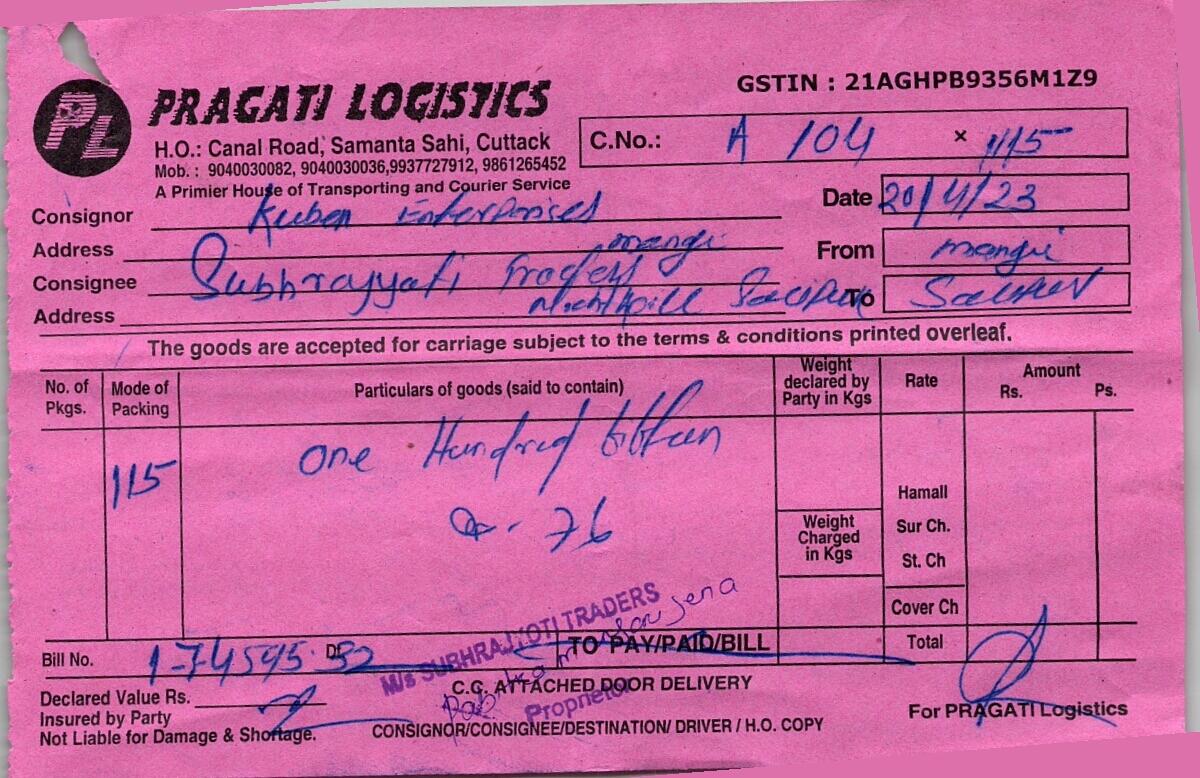 PL
PRAGATI LOGISTICS
GSTIN : 21AGHPB9356M1Z9
H.O.: Canal Road, Samanta Sahi, Cuttack
Mob. : 9040030082, 9040030036,9937727912, 9861265452
A Primier House of Transporting and Courier Service
C.No.: A 104 × 115
Date 20/4/23
Consignor Kuben Enterprises
Address mangu
From mangu
Consignee Subhrajyati
Address
To
The goods are accepted for carriage subject to the terms & conditions printed overleaf.
No. of Pkgs. Mode of Packing Particulars of goods (said to contain) Weight declared by Party in Kgs Rate Amount Rs. Ps.
115 One Hundred fifteen
76
Hamall
Weight Charged in Kgs
Sur Ch.
St. Ch
Cover Ch
Total
M/s SUBHRAJYOTI TRADERS
Jena
Proprietor
Bill No. 1-74595.32
TO PAY/PAID/BILL
Declared Value Rs.
Insured by Party
Not Liable for Damage & Shortage.
C.C. ATTACHED DOOR DELIVERY
CONSIGNOR/CONSIGNEE/DESTINATION/ DRIVER / H.O. COPY
For PRAGATI Logistics